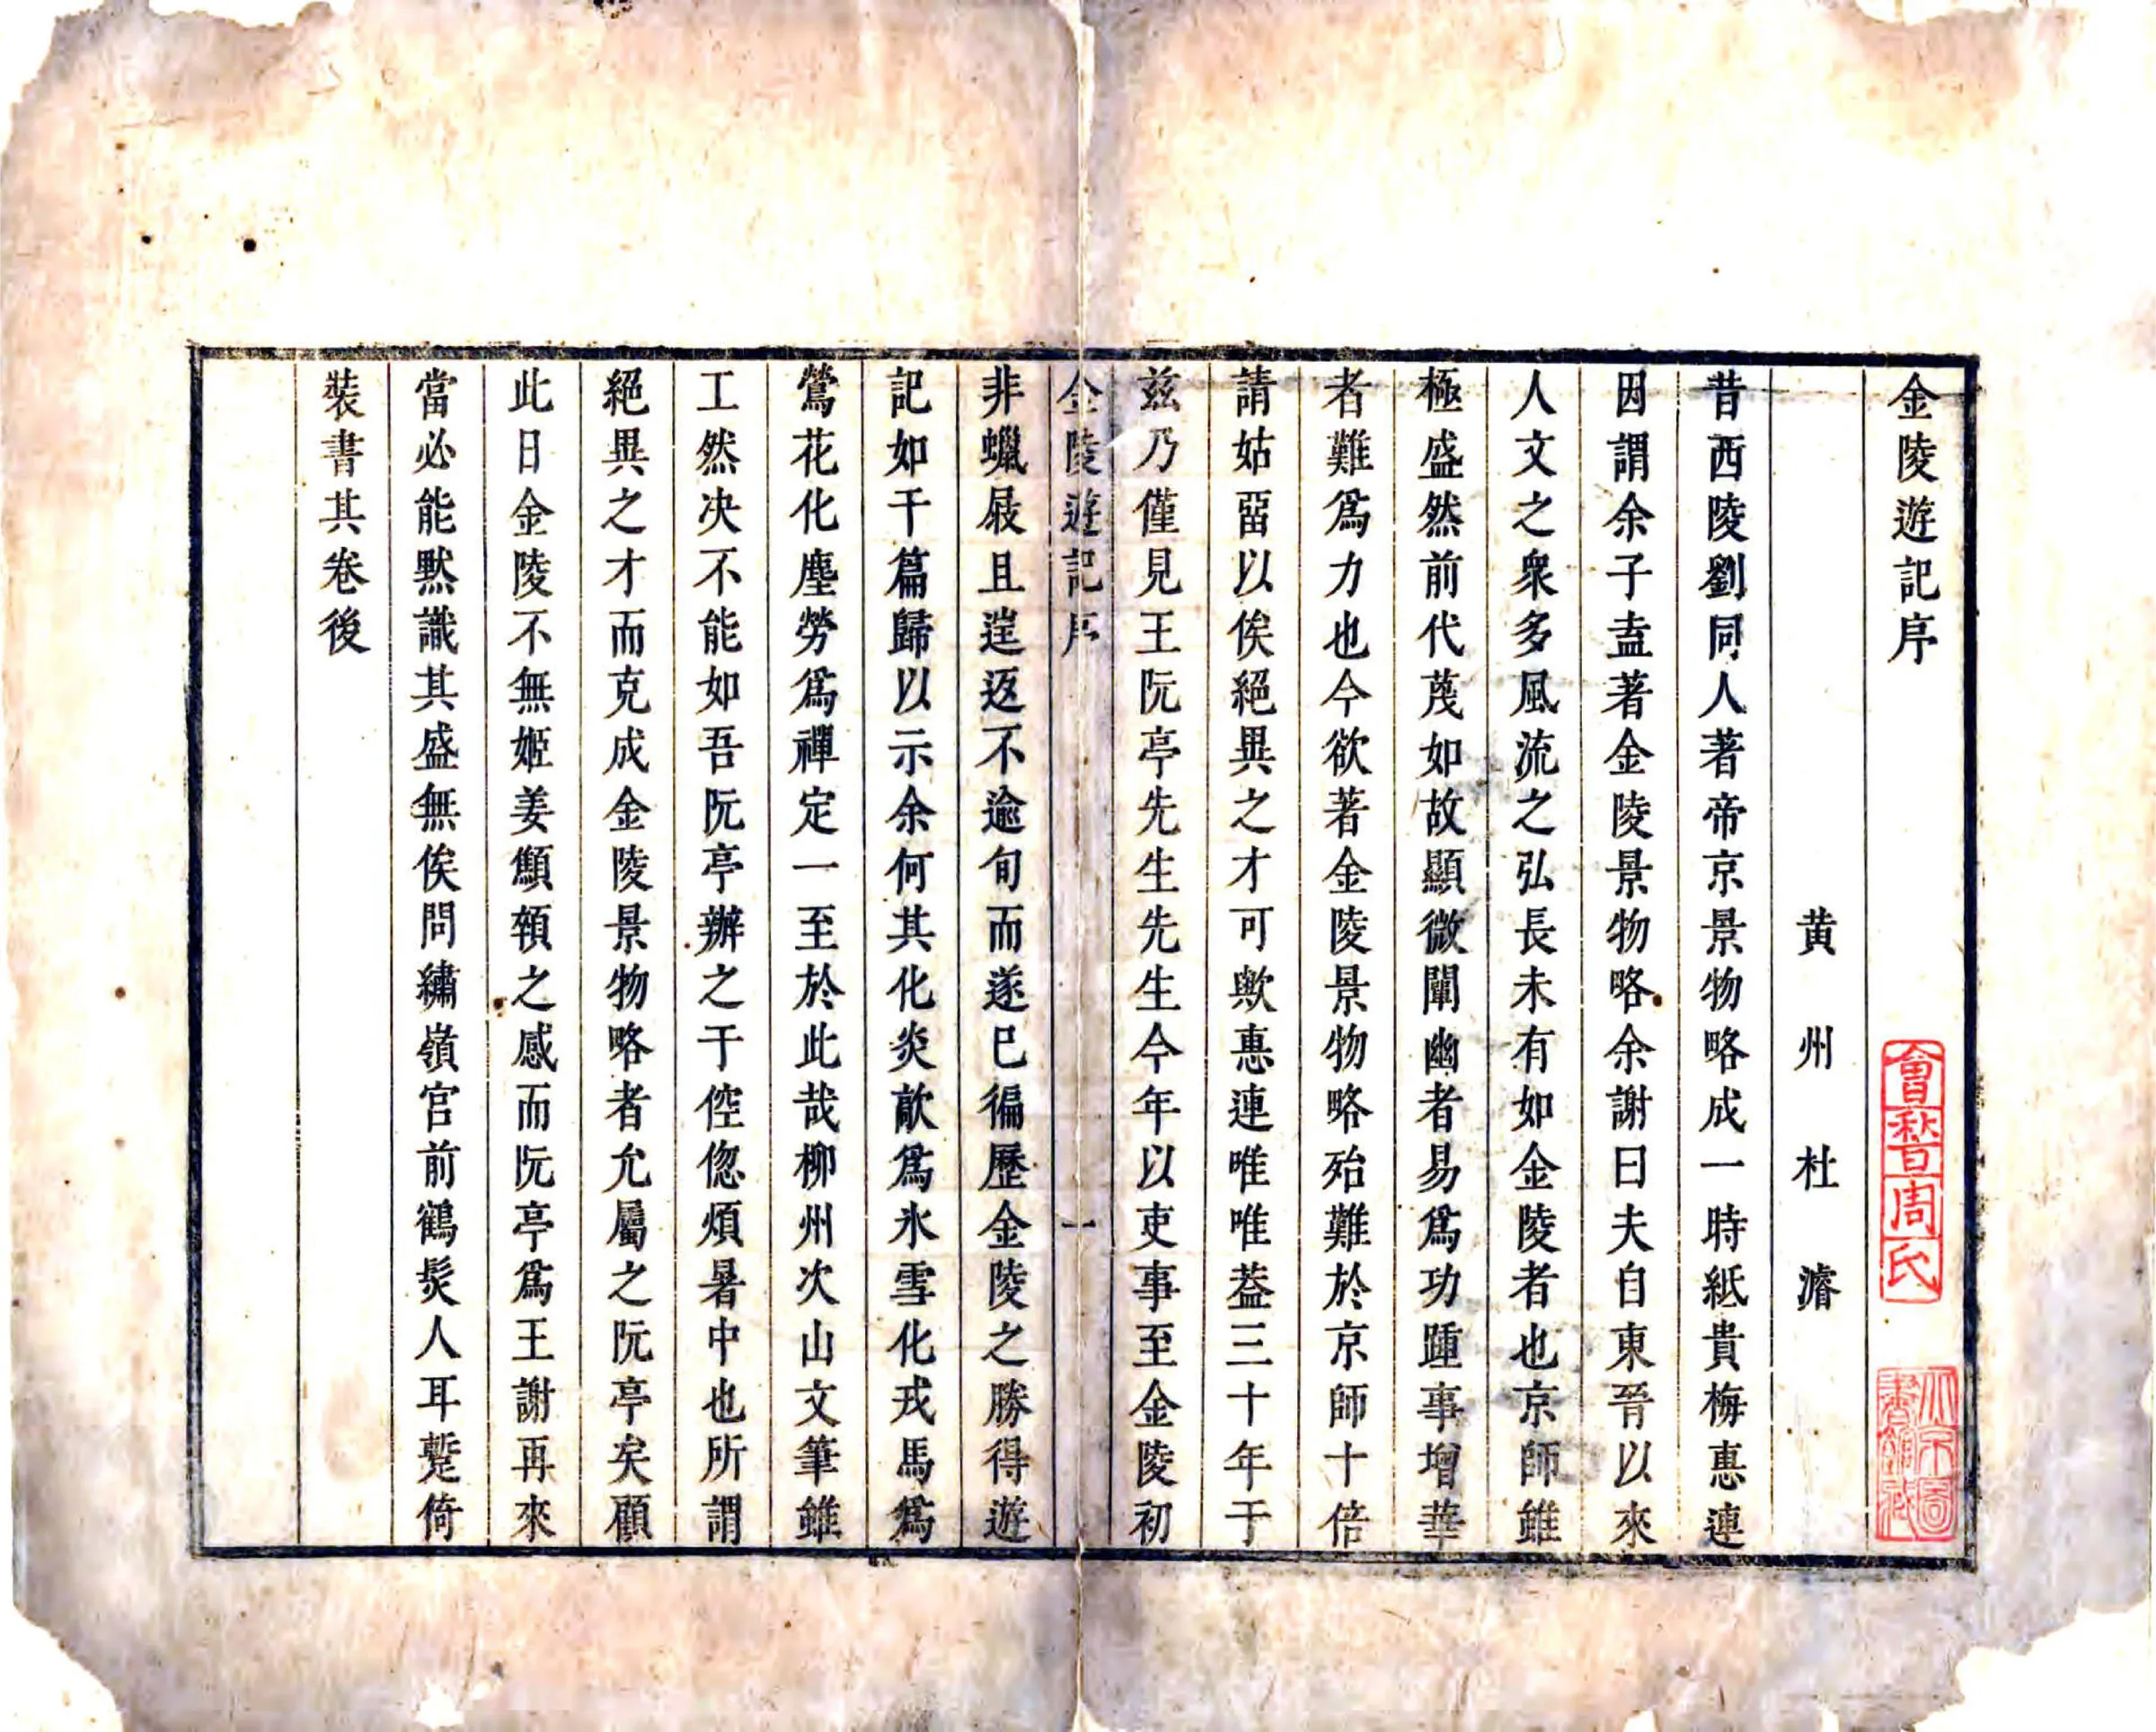 金陵遊記序
黄州杜濬
昔西陵劉同人著帝京景物略成一時紙貴梅惠連
因謂余子盍著金陵景物略余謝曰夫自東晉以來
人文之衆多風流之弘長未有如金陵者也京師雖
極盛然前代蔑如故顯微闡幽者易爲功踵事增華
者難爲力也今欲著金陵景物略殆難於京師十倍
請姑畱以俟絕異之才可歟惠連唯唯葢三十年于
兹乃僅見王阮亭先生先生今年以吏事至金陵初
金陵遊記序 一
非蠟屐且遄返不逾旬而遂已徧歷金陵之勝得遊
記如干篇歸以示余何其化炎歊爲氷雪化戎馬爲
鶯花化塵勞爲禪定一至於此哉柳州次山文筆雖
工然决不能如吾阮亭辦之于倥偬煩暑中也所謂
絕異之才而克成金陵景物略者允屬之阮亭矣顧
此日金陵不無姬姜顦顇之感而阮亭爲王謝再來
當必能默識其盛無俟問繡嶺宮前鶴髮人耳蹔倚
裝書其卷後
會稽周氏
北京圖書館藏